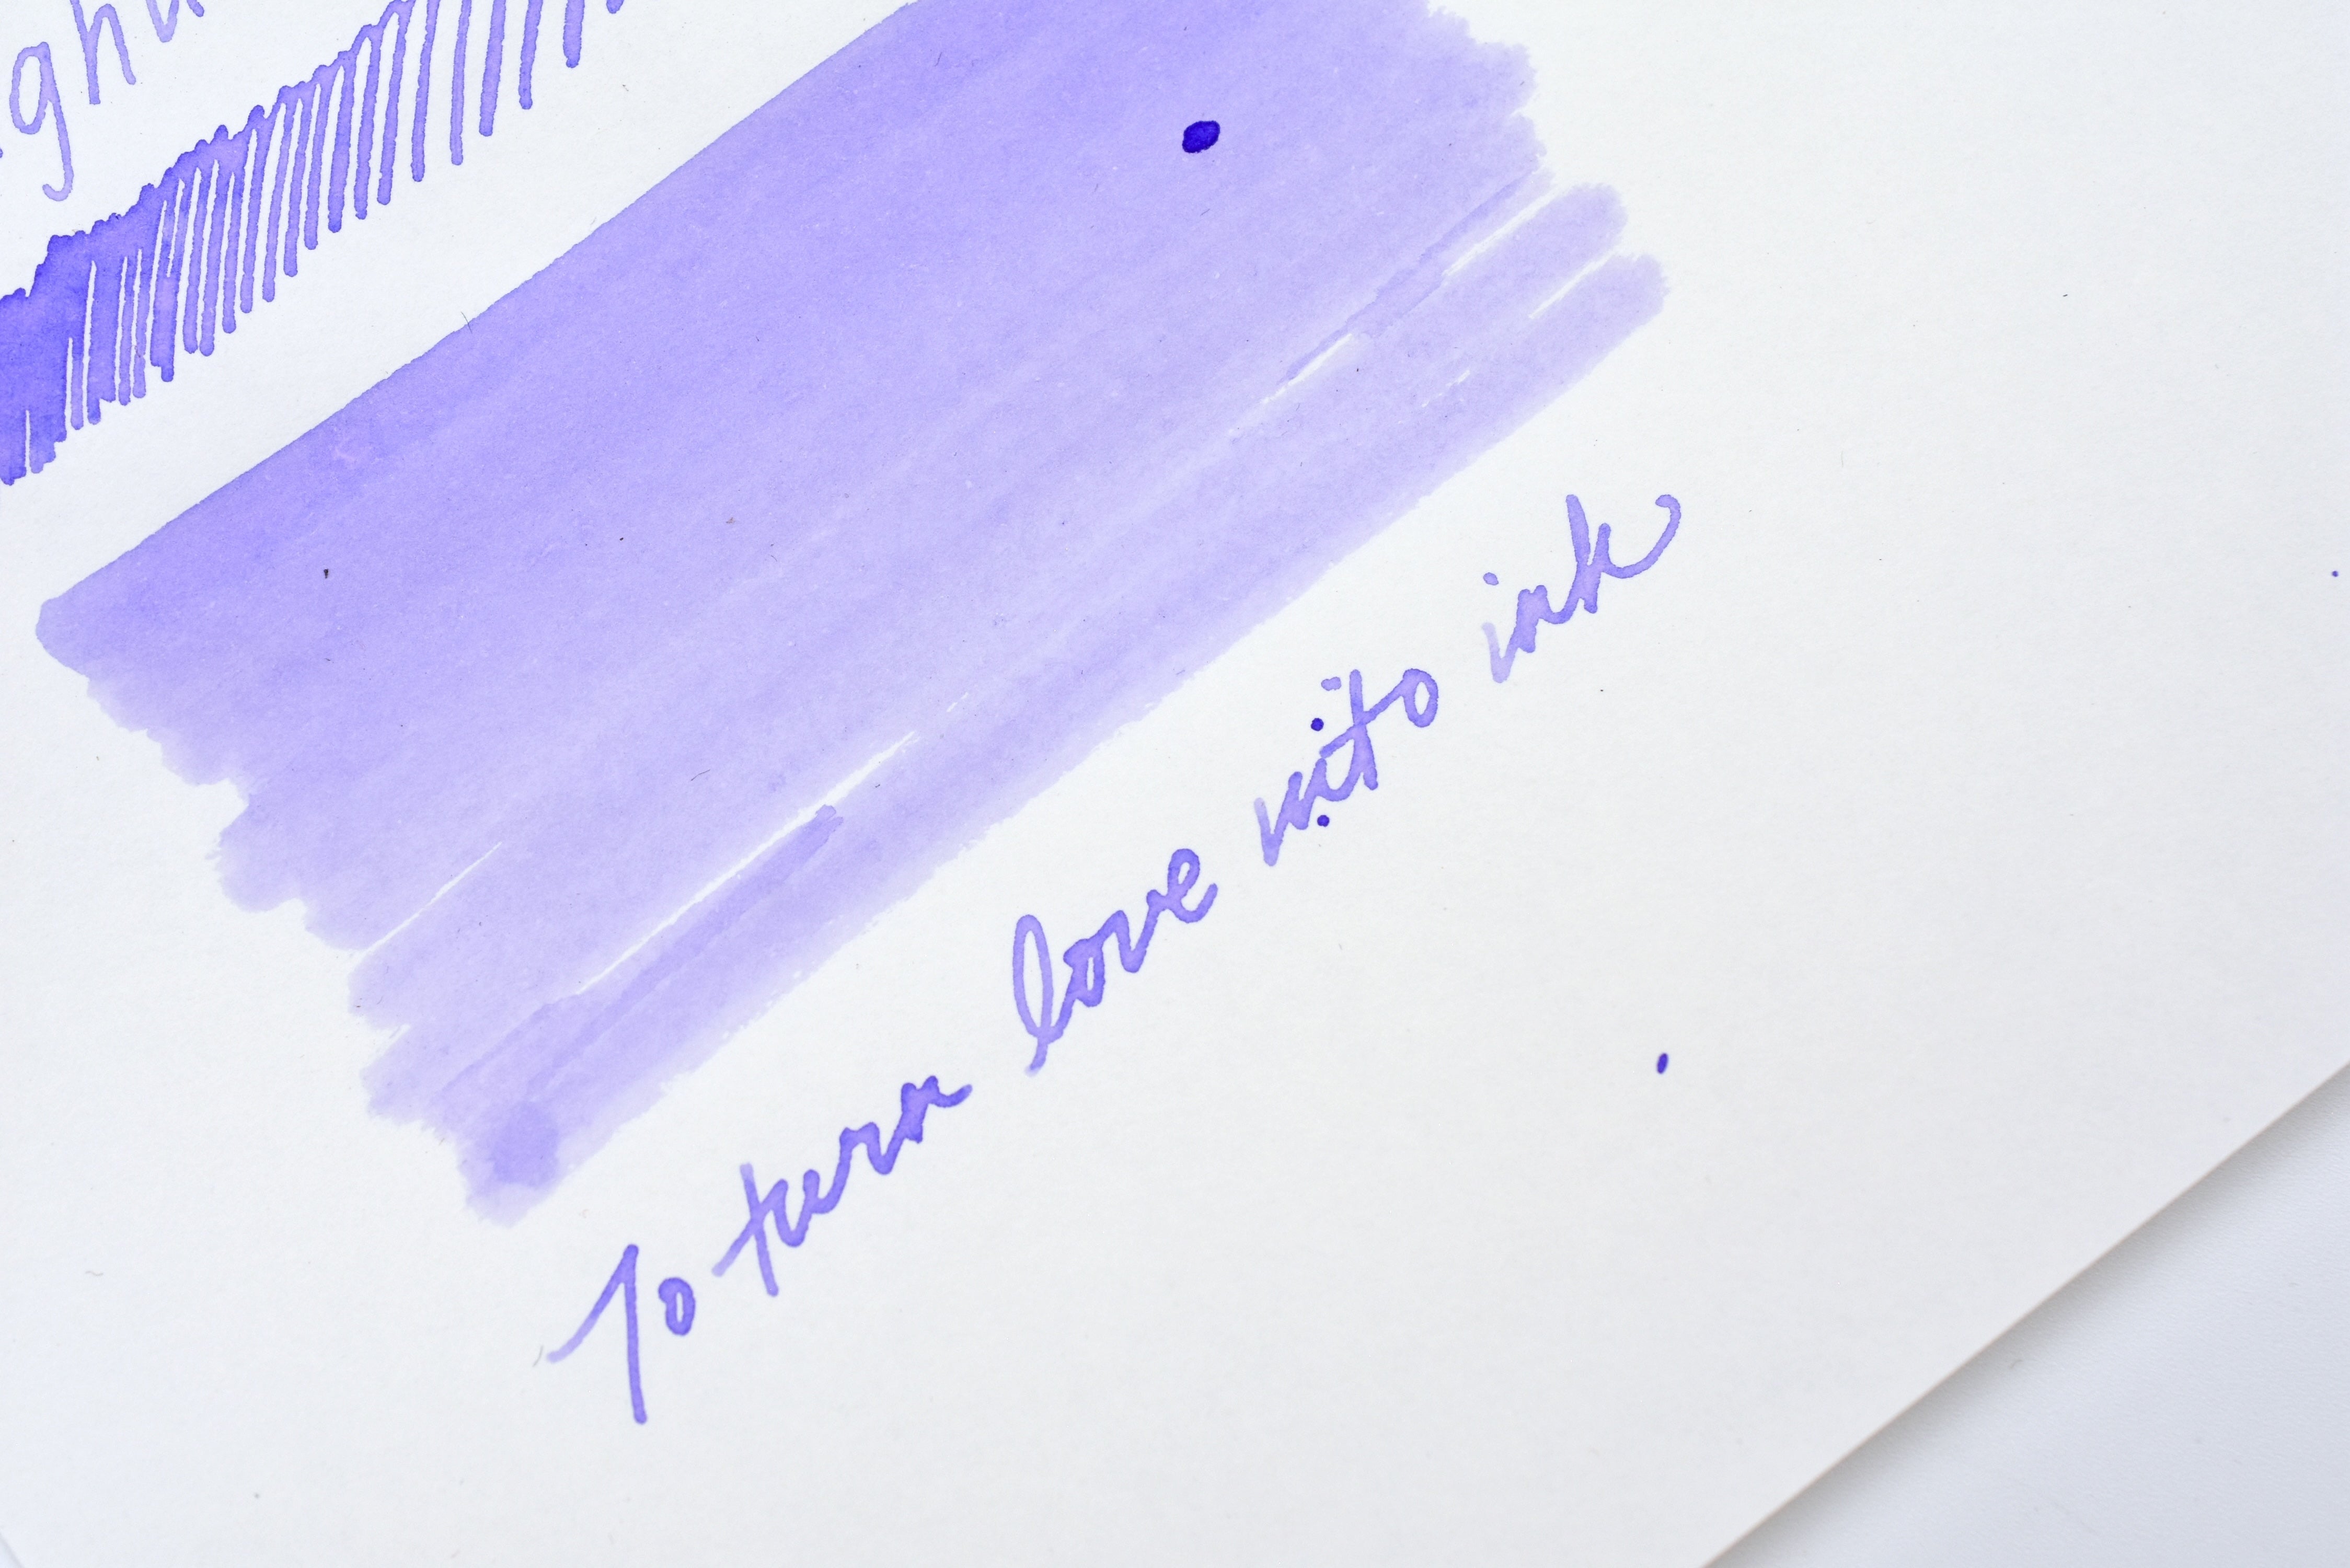 To turn love into ink